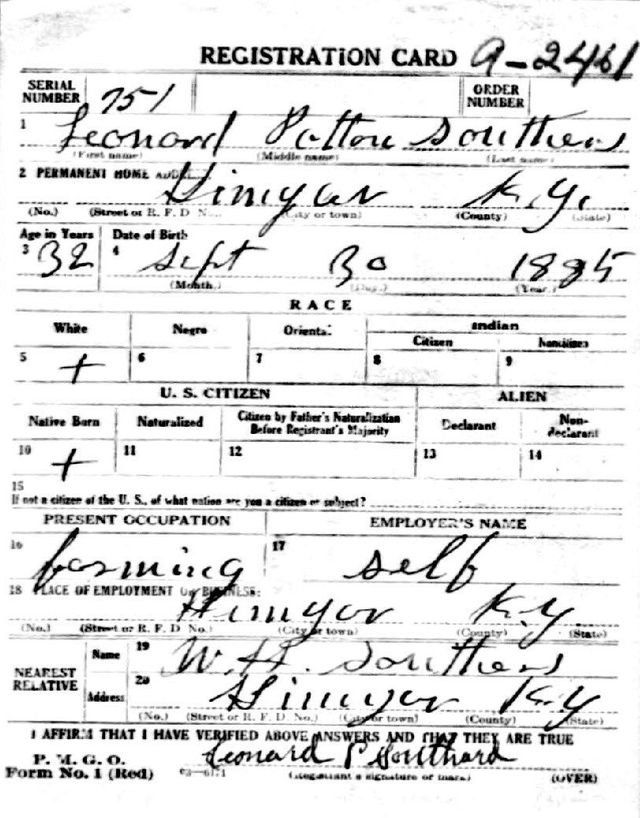 REGISTRATION CARD A-2461
SERIAL NUMBER 751 ORDER NUMBER
1 Leonard Patton Southers
(First name) (Middle name) (Last name)
2 PERMANENT HOME
Himyar K.y.
(No.) (Street or R. F. D No.) (City or town) (County) (State)
Age in Years Date of Birth
3 32 4 Sept 30 1885
(Month.) (Day.) (Year.)
RACE
White Negro Oriental Indian
Citizen Noncitizen
5 + 6 7 8 9
U. S. CITIZEN ALIEN
Native Born Naturalized Citizen by Father's Naturalization Before Registrant's Majority Declarant Non-declarant
10 + 11 12 13 14
15
If not a citizen of the U. S., of what nation are you a citizen or subject?
PRESENT OCCUPATION EMPLOYER'S NAME
16 farming 17 self
18 PLACE OF EMPLOYMENT OR BUSINESS:
Himyar K.y.
(No.) (Street or R. F. D No.) (City or town) (County) (State)
NEAREST RELATIVE
Name 19 Southers
Address 20 Himyar Ky
(No.) (Street or R. F. D. No.) (City or town) (County) (State)
I AFFIRM THAT I HAVE VERIFIED ABOVE ANSWERS AND THAT THEY ARE TRUE
P. M. G. O.
Form No. 1 (Red) Leonard P Southard
(Registrant's signature or mark) (OVER)